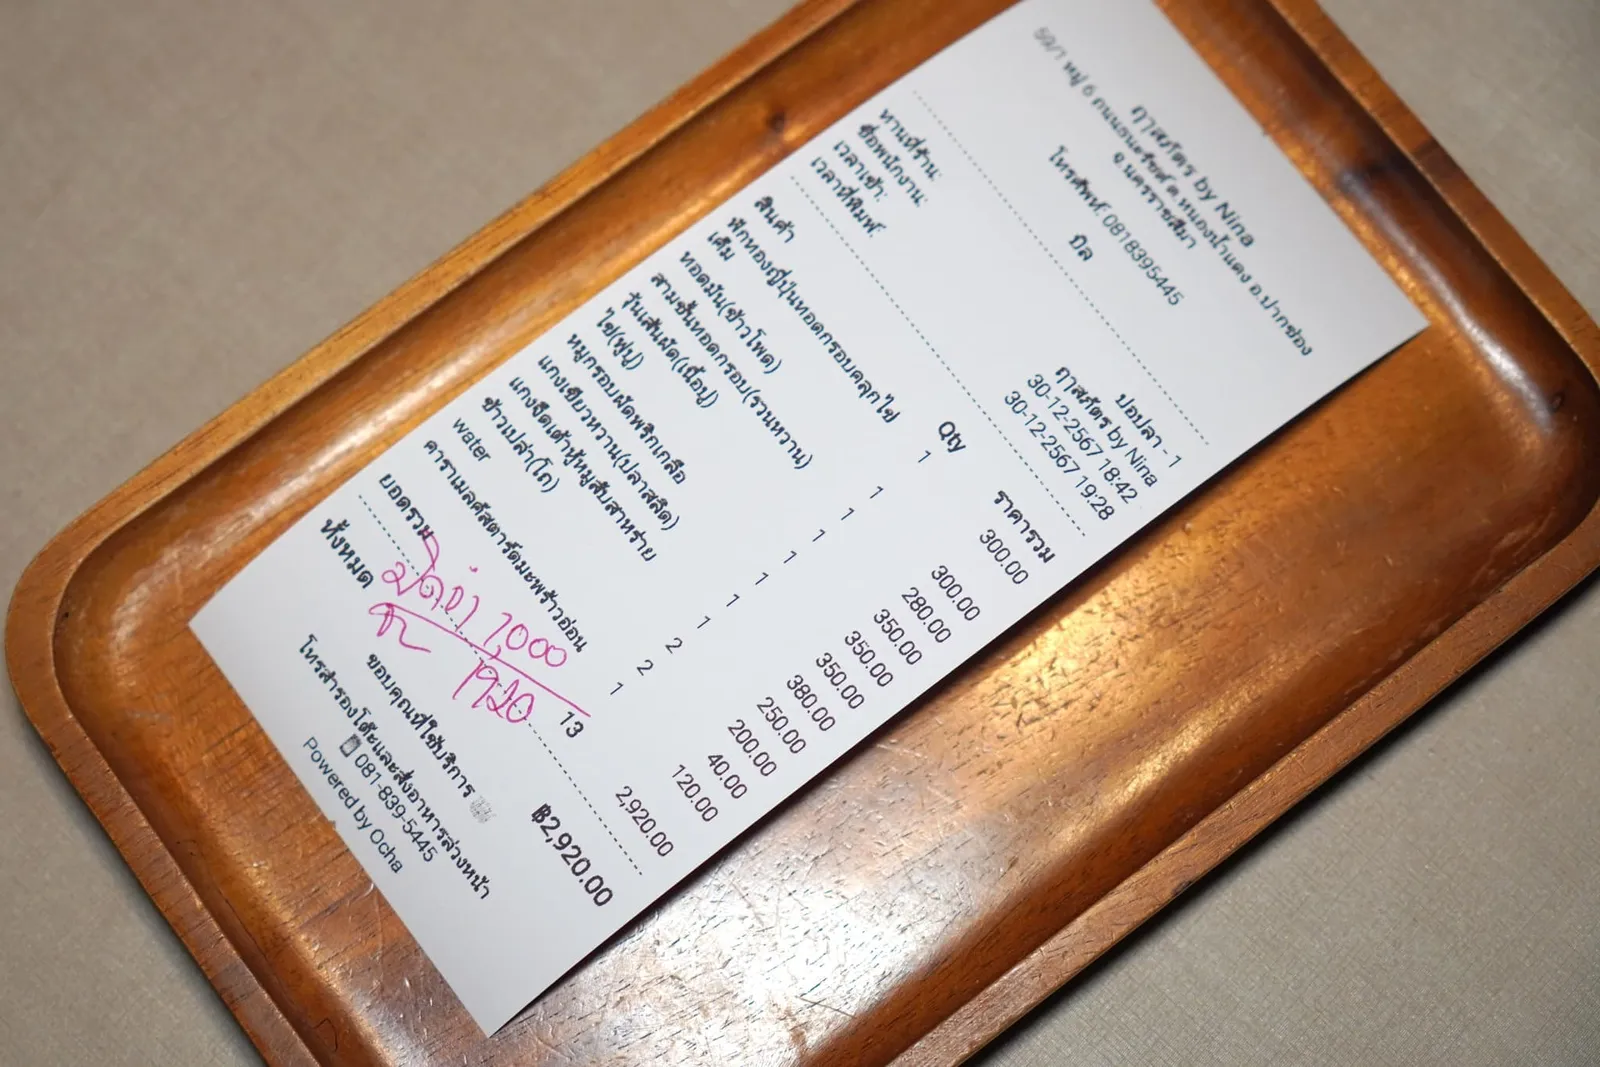 ฤาสภัตร by Nina
59/1 หมู่ 6 ถนนธนะรัชต์ ต.หนองน้ำแดง อ.ปากช่อง
จ.นครราชสีมา
โทรศัพท์: 0818395445
บิล
ทานที่ร้าน: ปอปลา - 1
ชื่อพนักงาน: ฤาสภัตร by Nina
เวลาเข้า: 30-12-2567 18:42
เวลาที่พิมพ์: 30-12-2567 19:28
สินค้า Qty ราคารวม
ฟักทองญี่ปุ่นทอดกรอบคลุกไข่ 1 300.00
เค็ม
ทอดมัน(ข้าวโพด) 1 300.00
สามชั้นทอดกรอบ(รวนหวาน) 1 280.00
วุ้นเส้นผัด(เนื้อปู) 1 350.00
ไข่(ฟูปู) 1 350.00
หมูกรอบผัดพริกเกลือ 1 350.00
แกงเขียวหวาน(ปลาสลิด) 1 380.00
แกงจืดเต้าหู้หมูสับสาหร่าย 1 250.00
ข้าวเปล่า(โถ) 2 200.00
water 2 40.00
คาราเมลคัสตาร์ดมะพร้าวอ่อน 1 120.00
ยอดรวม 13 2,920.00
ทั้งหมด ฿2,920.00
มัดจำ 1,000
1920
ขอบคุณที่ใช้บริการ
โทรสำรองโต๊ะและสั่งอาหารล่วงหน้า
081-839-5445
Powered by Ocha